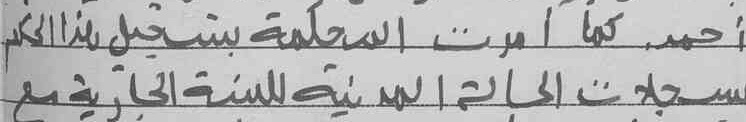 أحمد. كما أمرت المحكمة بتسجيل هذا الحكم
لسجلات الحالة المدنية للسنة الجارية مع